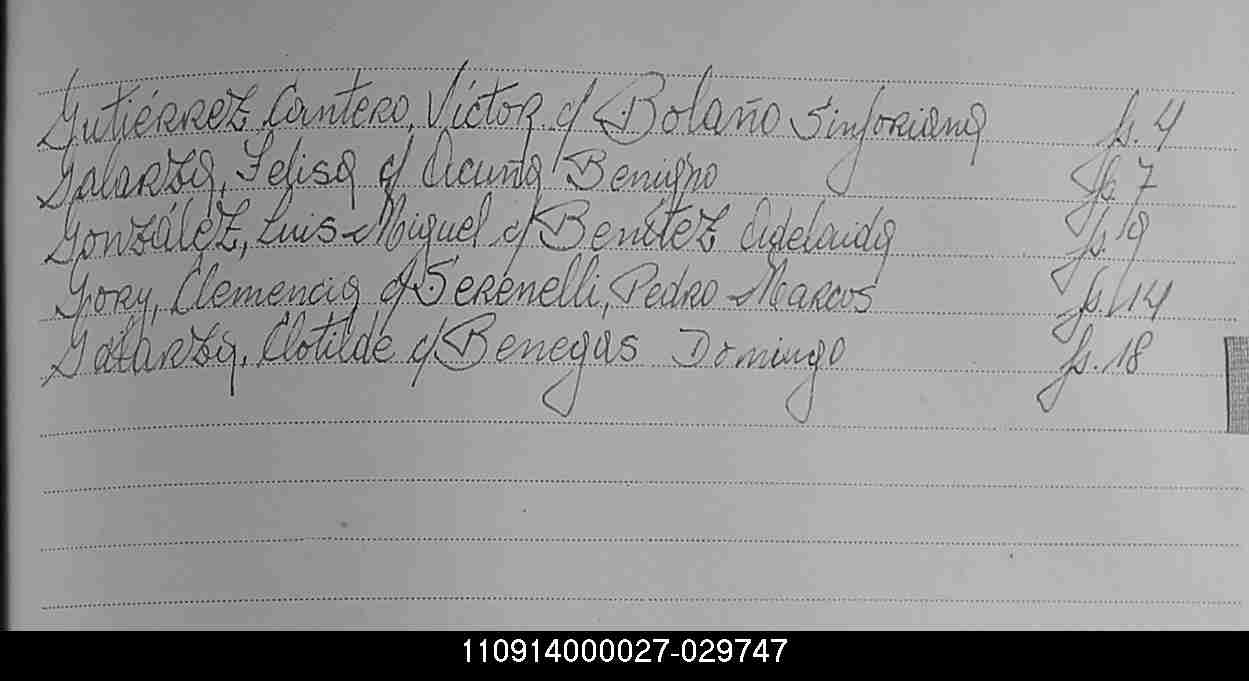 Gutiérrez Cantero, Víctor c/ Bolaño Sinforiana fs. 4
Galarza, Felisa c/ Acuña Benigno fs. 7
González, Luis Miguel c/ Benítez Adelaida fs. 9
Gory, Clemencia c/ Serenelli, Pedro Marcos fs. 14
Galarza, Clotilde c/ Benegas Domingo fs. 18
110914000027-029747